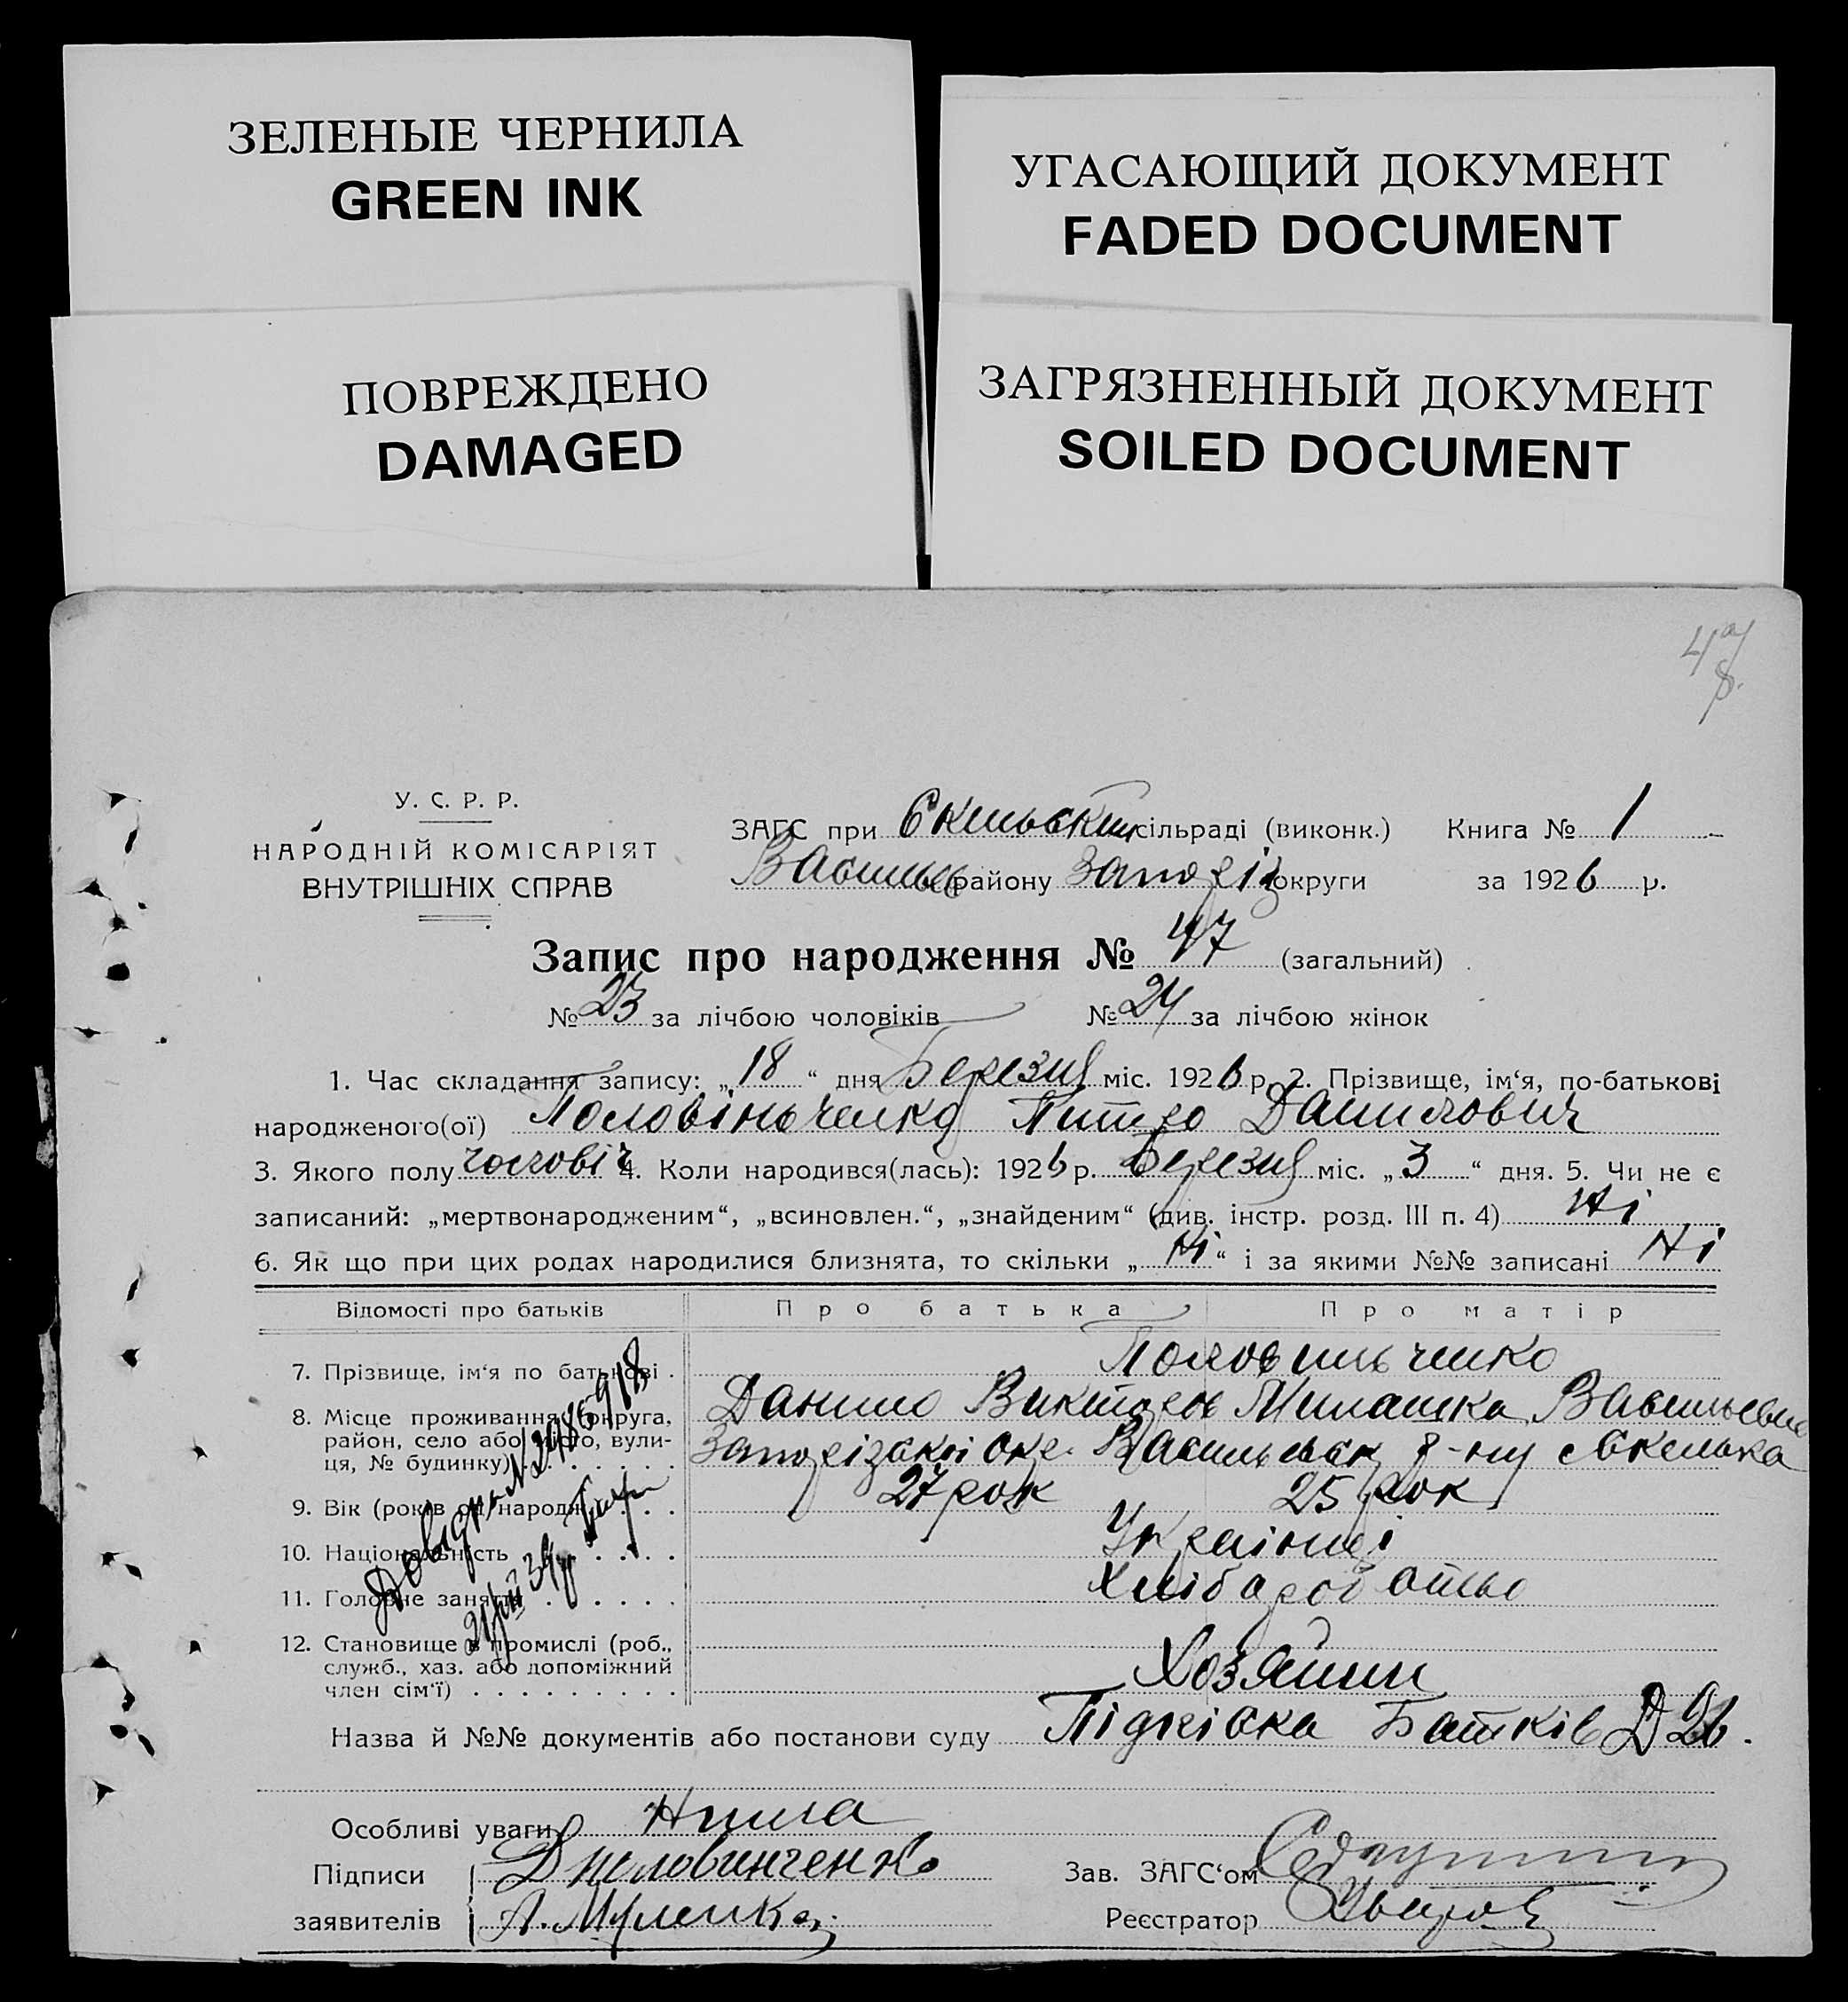 ЗЕЛЕНЫЕ ЧЕРНИЛА
GREEN INK
УГАСАЮЩИЙ ДОКУМЕНТ
FADED DOCUMENT
ПОВРЕЖДЕНО
DAMAGED
ЗАГРЯЗНЕННЫЙ ДОКУМЕНТ
SOILED DOCUMENT
У. С. Р. Р.
НАРОДНІЙ КОМІСАРІЯТ
ВНУТРІШНІХ СПРАВ
ЗАГС при Скельській сільраді (виконк.) Книга № 1
Васильєв району Запоріз округи за 1926 р.
Запис про народження № 47 (загальний)
№ 23 за лічбою чоловіків № 24 за лічбою жінок
1. Час складання запису: „18“ дня Березня міс. 1926 р. 2. Прізвище, ім‘я, по-батькові
народженого(ої) Половіньченко Дмитро Данилович
3. Якого полу чоловіч 4. Коли народився(лась): 1926 р. Березня міс. „3“ дня. 5. Чи не є
записаний: „мертвонародженим“, „всиновлен.“, „знайденим“ (див. інстр. розд. III п. 4) Ні
6. Як що при цих родах народилися близнята, то скільки „Ні“ і за якими №№ записані Ні
Відомості про батьків Про батька Про матір
7. Прізвище, ім‘я по батькові . Половиньченко
Данило Викторов Милашка Васильевна
8. Місце проживання (округа,
район, село або місто, вули-
ця, № будинку) Запорізької окр. Васильевск р-ну с Скелька
9. Вік (років од народж.) 27 рок 25 рок
10. Національність Українці
11. Головне заняття Хлібаробство
12. Становище в промислі (роб.,
служб., хаз. або допоміжний
член сім‘ї) Хозяини
Довідка №
Назва й №№ документів або постанови суду Підпіска Батків Д 26.
Особливі уваги Нима
Підписи Д Половинченко
заявителів
Зав. ЗАГС‘ом
Реєстратор